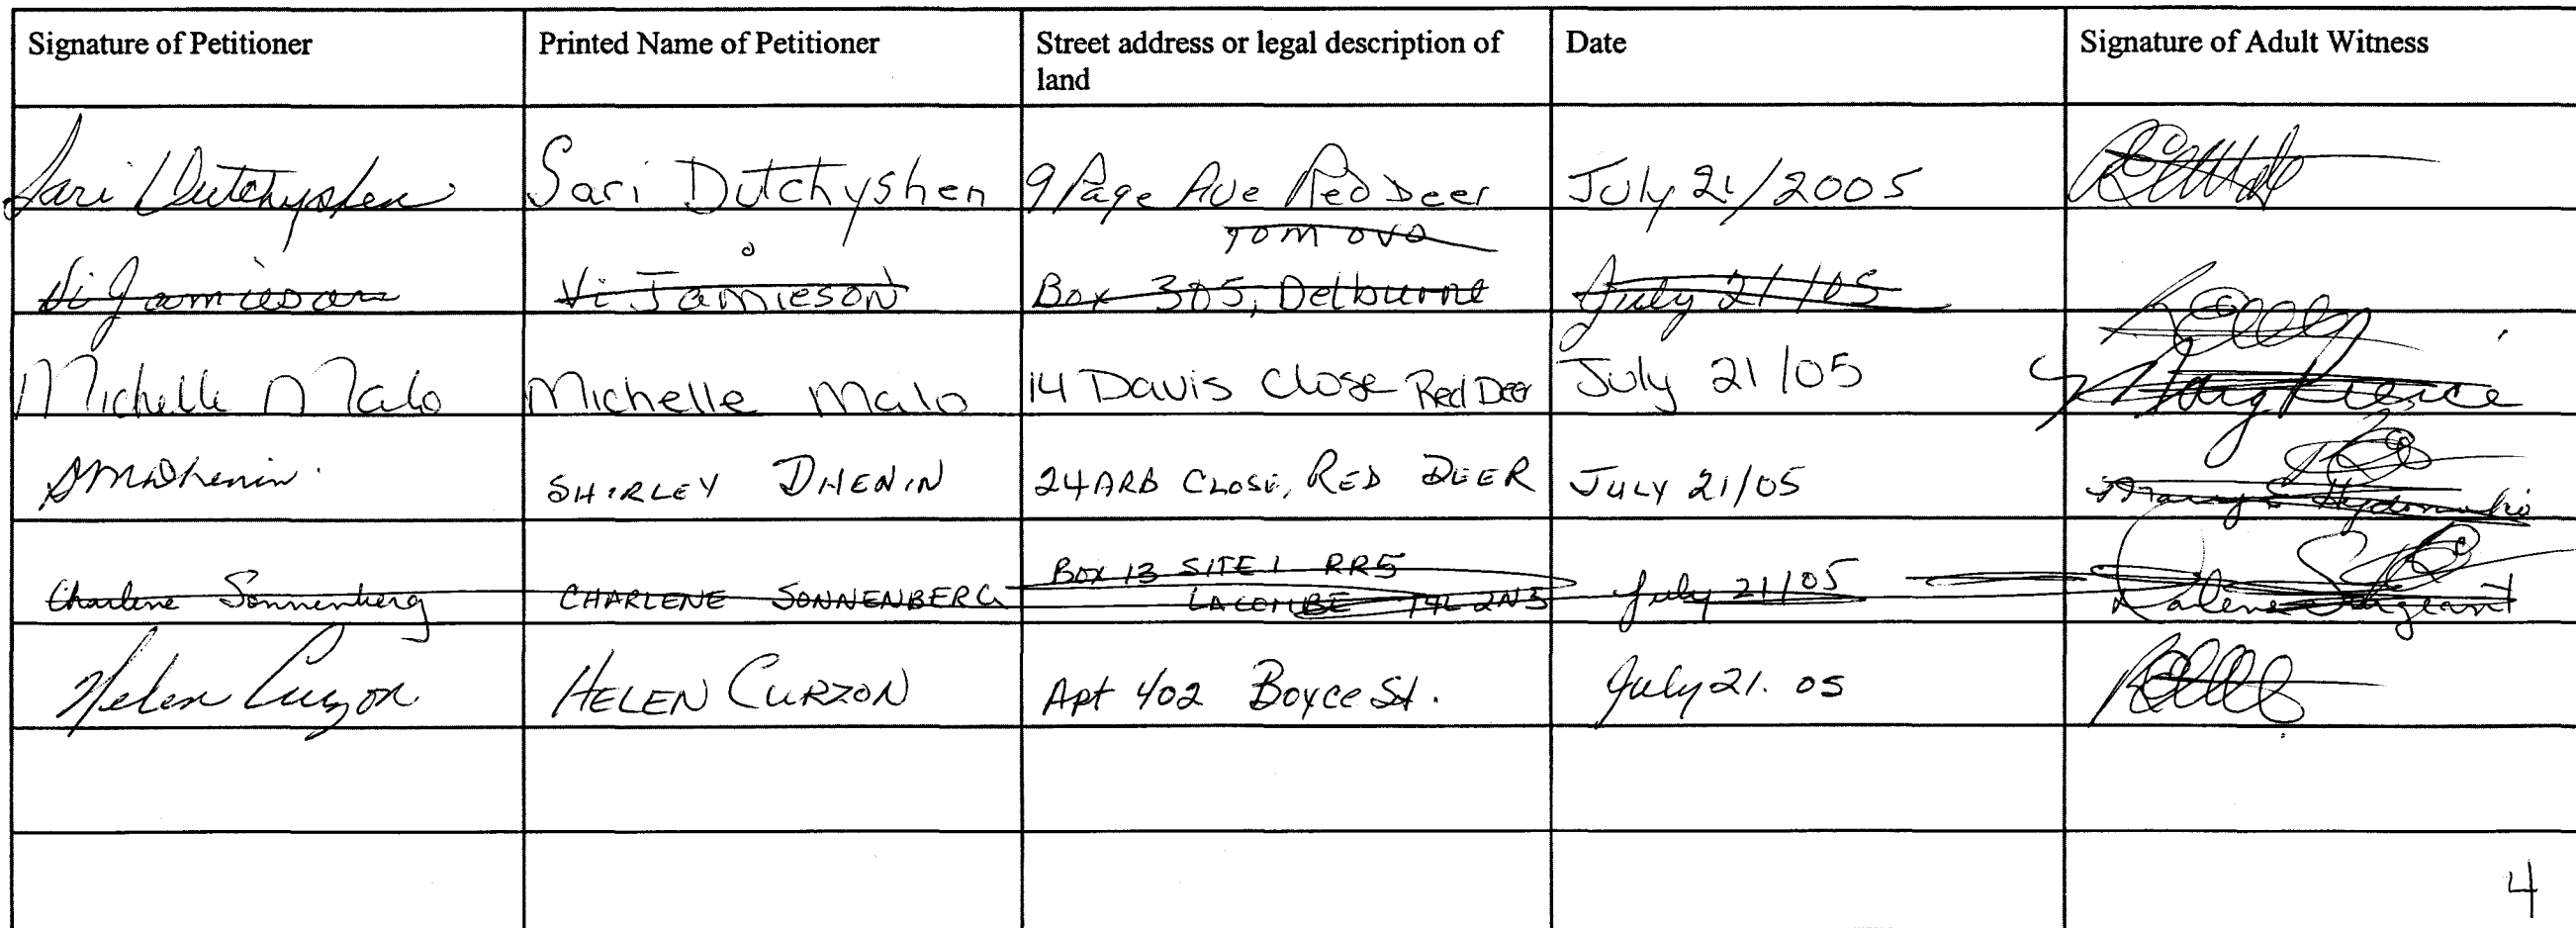 Signature of Petitioner Printed Name of Petitioner Street address or legal description of land Date Signature of Adult Witness
Sari Dutchyshen Sari Dutchyshen 9 Page Ave Red Deer July 21/2005
Vi Jamieson Vi Jamieson Box 305, Delburne T0M 0V0 July 21/05
Michelle Malo Michelle Malo 14 Davis Close Red Deer July 21/05 Marg Pierce
SMDhenin. SHIRLEY DHENIN 24 ARB CLOSE, RED DEER JULY 21/05
Charlene Sonnenberg CHARLENE SONNENBERG BOX 13 SITE 1 RR5
LACOMBE T4L 2N5 July 21/05 Darlene Sargeant
Helen Curzon HELEN CURZON Apt 402 Boyce St. July 21. 05
4